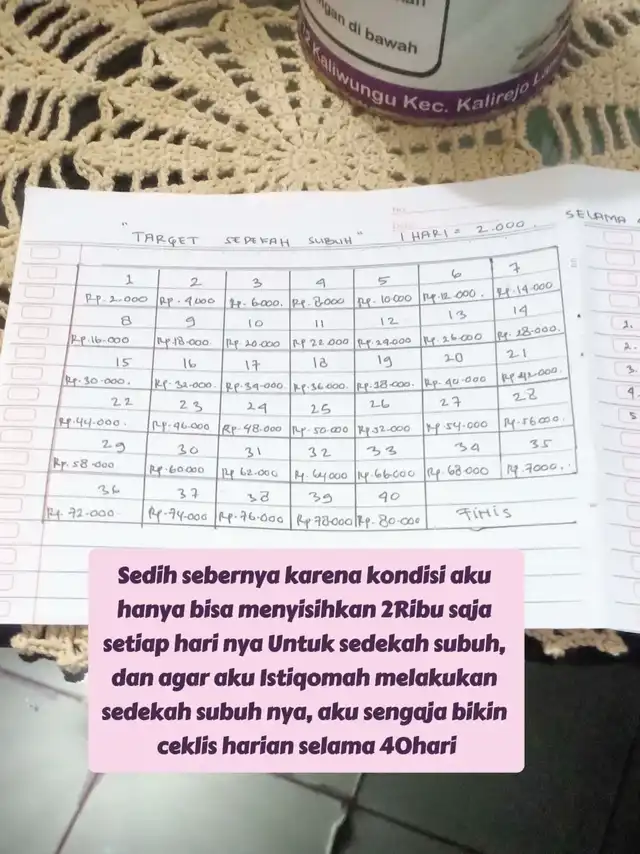 ngan di bawah
Kaliwungu Kec. Kalirejo
"TARGET SEDEKAH SUBUH" 1 HARI = 2.000.
SELAMA
1 2 3 4 5 6 7
Rp. 2.000 Rp. 4000 Rp. 6000. Rp. 8000 Rp. 10.000 Rp. 12.000. Rp. 14.000
8 9 10 11 12 13 14
Rp. 16.000 Rp. 18.000. Rp. 20.000 Rp 22.000 Rp. 24.000 Rp. 26.000 Rp. 28.000.
15 16 17 18 19 20 21
Rp. 30.000. Rp. 32.000. Rp. 34.000. Rp. 36.000. Rp. 38.000. Rp. 40.000 Rp 42.000.
22 23 24 25 26 27 28
Rp. 44.000. Rp. 46.000 Rp. 48.000 Rp. 50.000 Rp 52.000 Rp. 54.000 Rp. 56.000.
29 30 31 32 33 34 35
Rp. 58.000 Rp. 60.000 Rp 62.000 Rp. 64000 Rp. 66.000 Rp. 68.000 Rp. 7000.
36 37 38 39 40
Rp. 72.000 Rp. 74.000 Rp. 76.000 Rp 78.000 Rp. 80.000 FiNiS
1.
2.
3.
4.
5
Sedih sebernya karena kondisi aku
hanya bisa menyisihkan 2Ribu saja
setiap hari nya Untuk sedekah subuh,
dan agar aku Istiqomah melakukan
sedekah subuh nya, aku sengaja bikin
ceklis harian selama 40hari